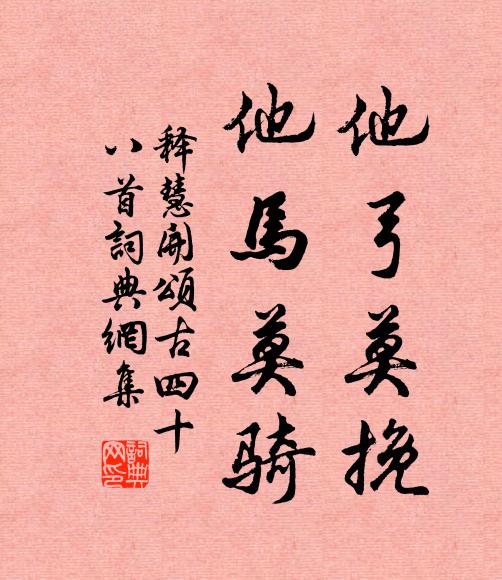 他弓莫挽
他馬莫騎
释慧開頌古四十
八首詞典網集
詞典网印